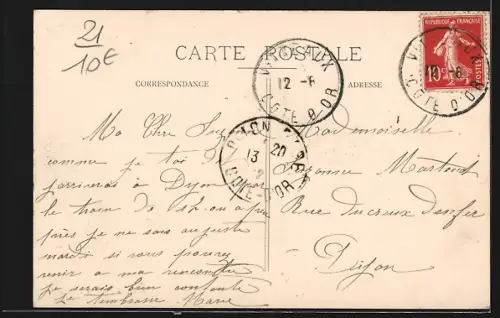 21
10€
CARTE POSTALE
CORRESPONDANCE
ADRESSE
VITTEAUX
12 -6
COTE D'OR
REPUBLIQUE FRANÇAISE
POSTES
10
COTE D'OR
DIJON
13
20
COTE-D'OR
Ma Chère
comme je
arriverai à Dijon par
le train de
près je ne sais au juste
mardi si vous pouvez
venir a ma rencontre
je serais bien contente
Je t'embrasse Marie
Mademoiselle
Suzanne
Rue du creux d'enfer
Dijon